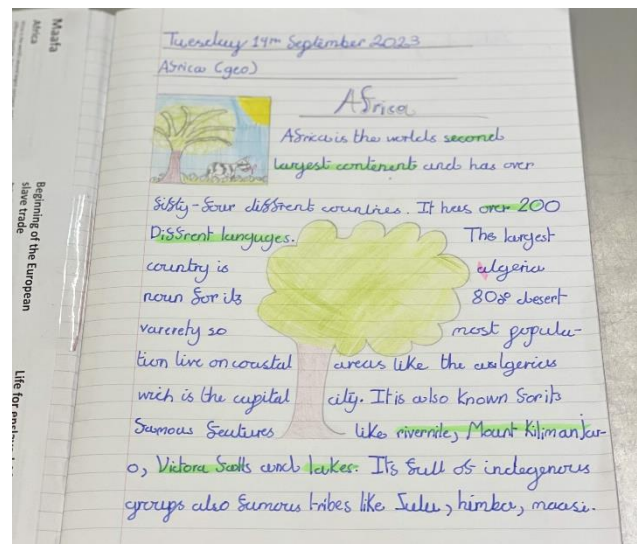 Maafa
Africa
Beginning of the European
slave trade
Tuesday 19th September 2023
Africa (geo)
Africa
Africa is the worlds second
largest contenent and has over
fifty-four different countries. It has over 200
Different languges. The largest
country is algeria
noun for its 80% desert
varerety so most popula-
tion live on coastal areas like the
wich is the capital city. It is also known for its
famous features like rivernile, Mount Kilimanjar-
o, Victora falls and lakes. Its full of indegenous
groups also famous tribes like Zulu, himba, maasi.